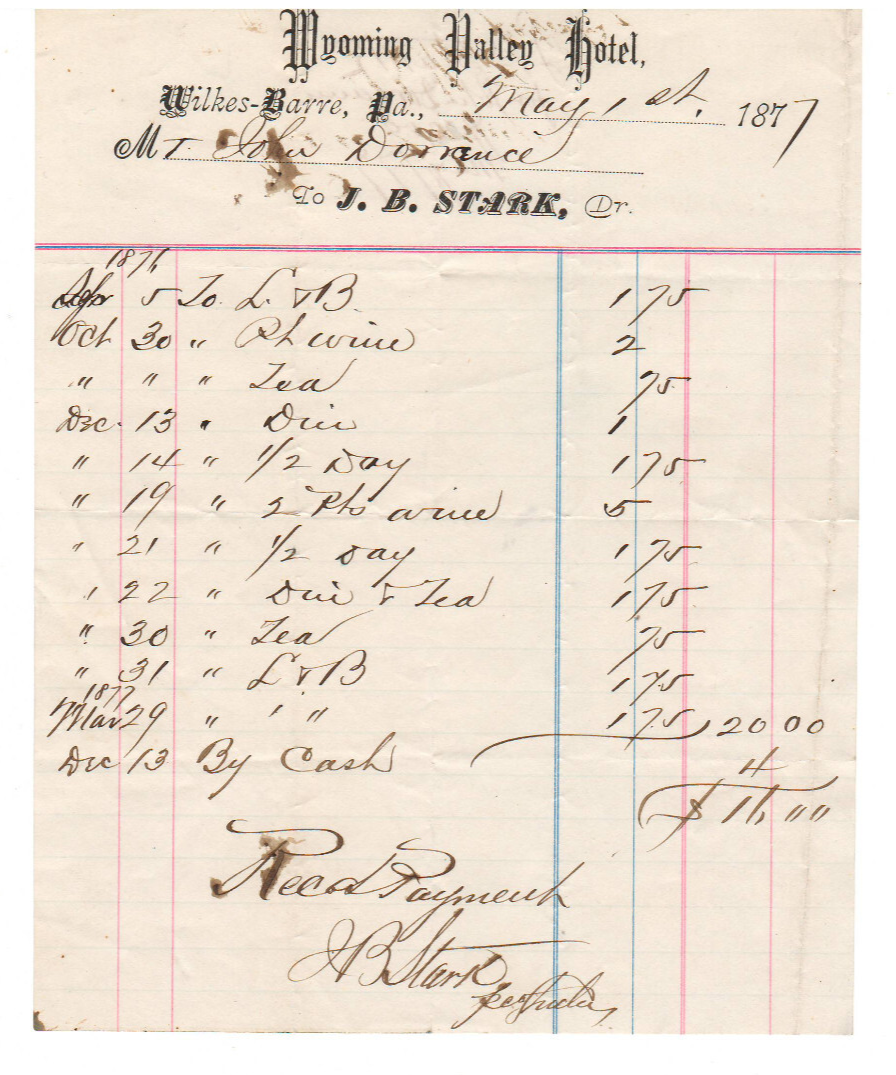 Wyoming Valley Hotel,
Wilkes-Barre, Pa., May 1st, 1877
Mr. John Dorrance
To J. B. STARK, Dr.
1876
Apr 5 To L & B 1 75
Oct 30 " Pt wine 2
" " " Tea 75
Dec. 13 " Din 1
" 14 " 1/2 Day 1 75
" 19 " 2 Pts wine 5
" 21 " 1/2 Day 1 75
" 22 " Din & Tea 1 75
" 30 " Tea 75
" 31 " L & B 1 75
1877
Mar 29 " " " 1 75 20 00
Dec 13 By Cash 4
$ 16 " "
Recd Payment
J B Stark